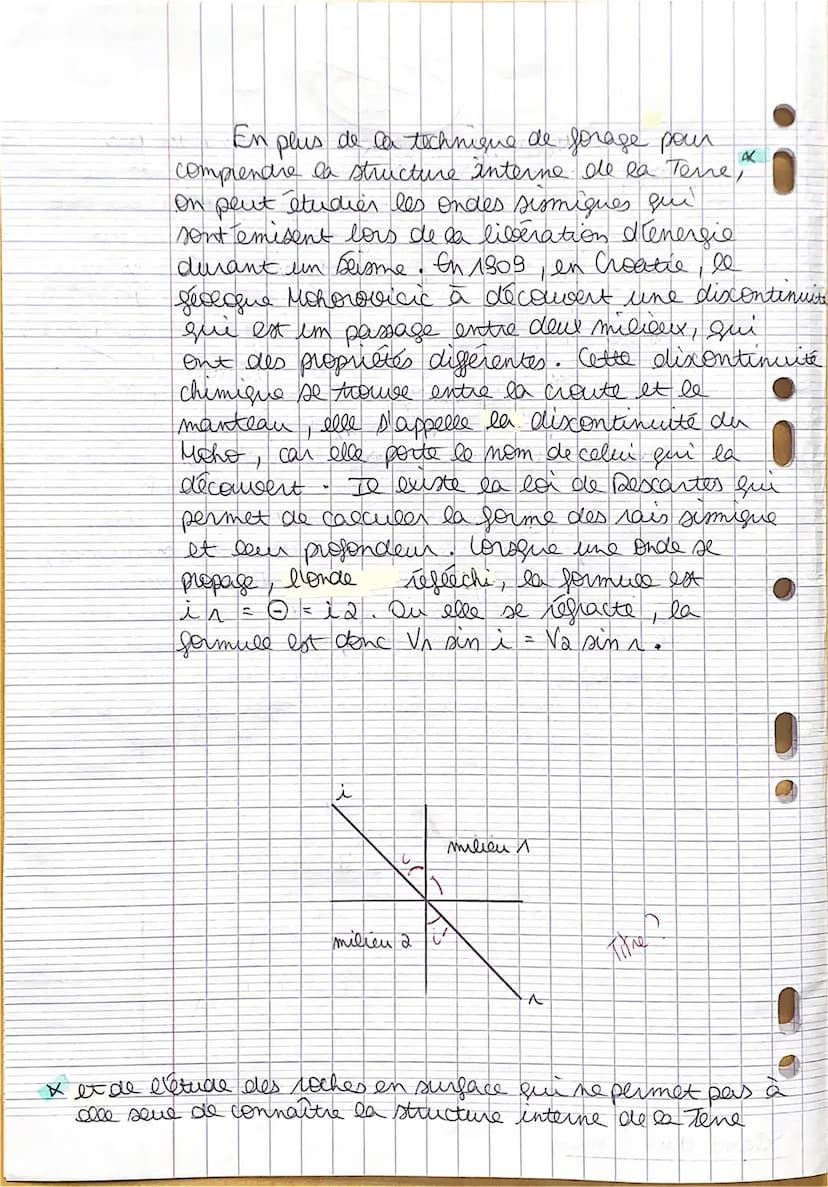 En plus de la technique de forage pour
comprendre la structure interne de la Terre, *
on peut étudier les ondes sismiques qui
sont émisent lors de la libération d'énergie
durant un séisme. En 1909, en Croatie, le
géologue Mohorovicic à découvert une discontinuité
qui est un passage entre deux milieux, qui
ont des propriétés différentes. Cette discontinuité
chimique se trouve entre la croute et le
manteau, elle s'appelle la discontinuité du
Moho, car elle porte le nom de celui qui la
découvert. Il existe la loi de Descartes qui
permet de calculer la forme des rais simique
et leur profondeur. Lorsque une onde se
propage, l'onde réfléchi, la formule est
i1 = Θ = i2. Ou elle se réfracte, la
formule est donc V1 sin i = V2 sin r.
i
milieu 1
i
milieu 2 i'
Titre ?
r
* et de l'étude des roches en surface qui ne permet pas à
elle seul de connaître la structure interne de la Terre